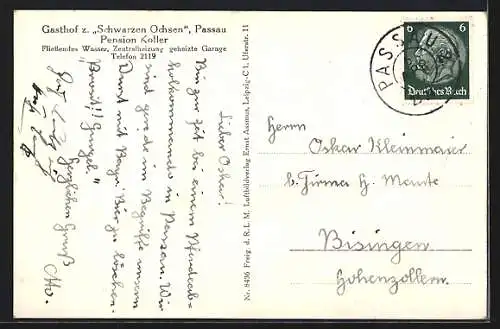 Gasthof z. „Schwarzen Ochsen“, Passau
Pension Koller
Fließendes Wasser, Zentralheizung geheizte Garage
Telefon 2119
Lieber Oskar!
Bin zur Zeit bei einem Pferdeab-
holkommando in Passau. Wir
sind gerade im Begriffe unsern
Durst mit Bayr. Bier zu löschen.
"Prosit!! Gurgel."
Herzlichen Gruß
Otto.
Nr. 8436 Freig. d. R.L.M. Luftbildverlag Ernst Assmus, Leipzig-C 1, Uferstr. 11
PASSAU
6 6
Deutsches Reich
Herrn
Oskar Kleinmaier
b. Firma H. Maute
Bisingen
Hohenzollern.